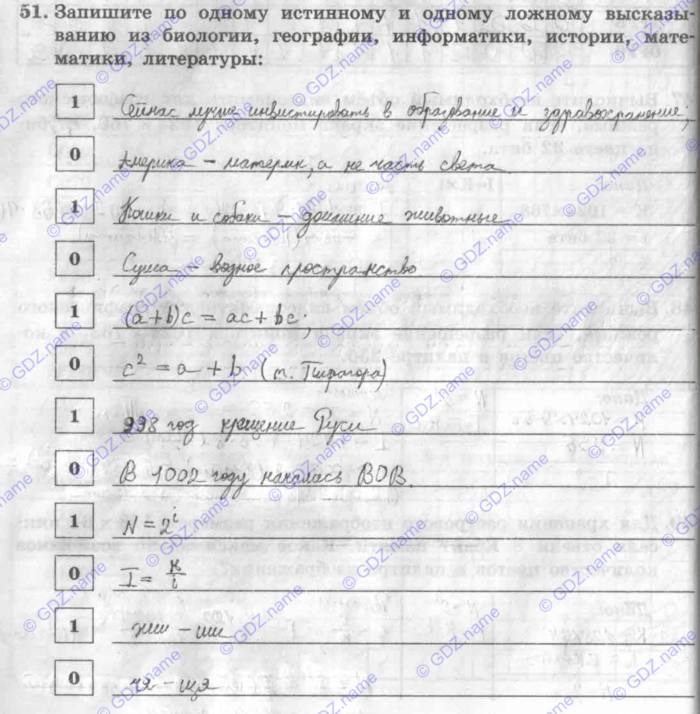 51. Запишите по одному истинному и одному ложному высказы-
ванию из биологии, географии, информатики, истории, мате-
матики, литературы:
1 Сейчас лучше инвестировать в образование и здравоохранение,
0 Америка – материк, а не часть света
1 Кошки и собаки – домашние животные
0 Суша – водное пространство
1 (a+b)c = ac + bc;
0 c² = a + b (т. Пифагора)
1 998 год крещение Руси
0 В 1002 году началась ВОВ.
1 N = 2^i
0 I = K/i
1 жи – ши
0 чя – щя
© GDZ.name